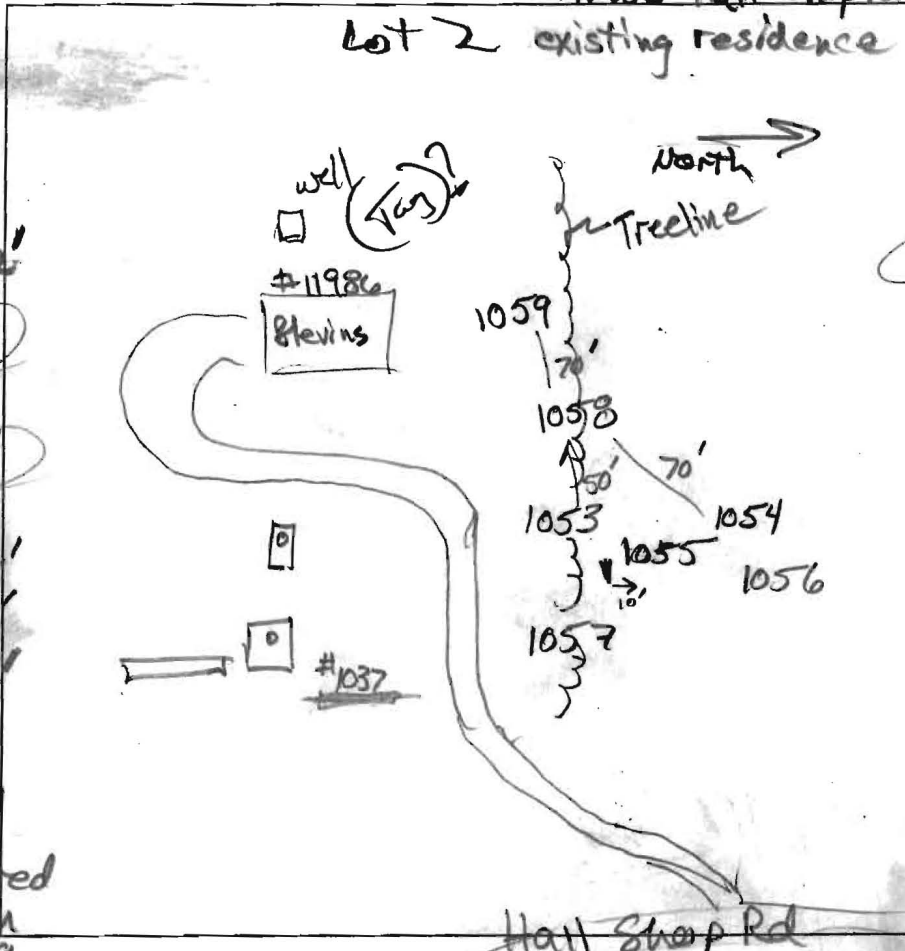 Lot 2 existing residence
North
well
Tag?
Treeline
#11986
Blevins
1059
70'
1058
50'
70'
1053
1054
1055
1056
10'
1057
#1037
ed
Hall Sharp Rd